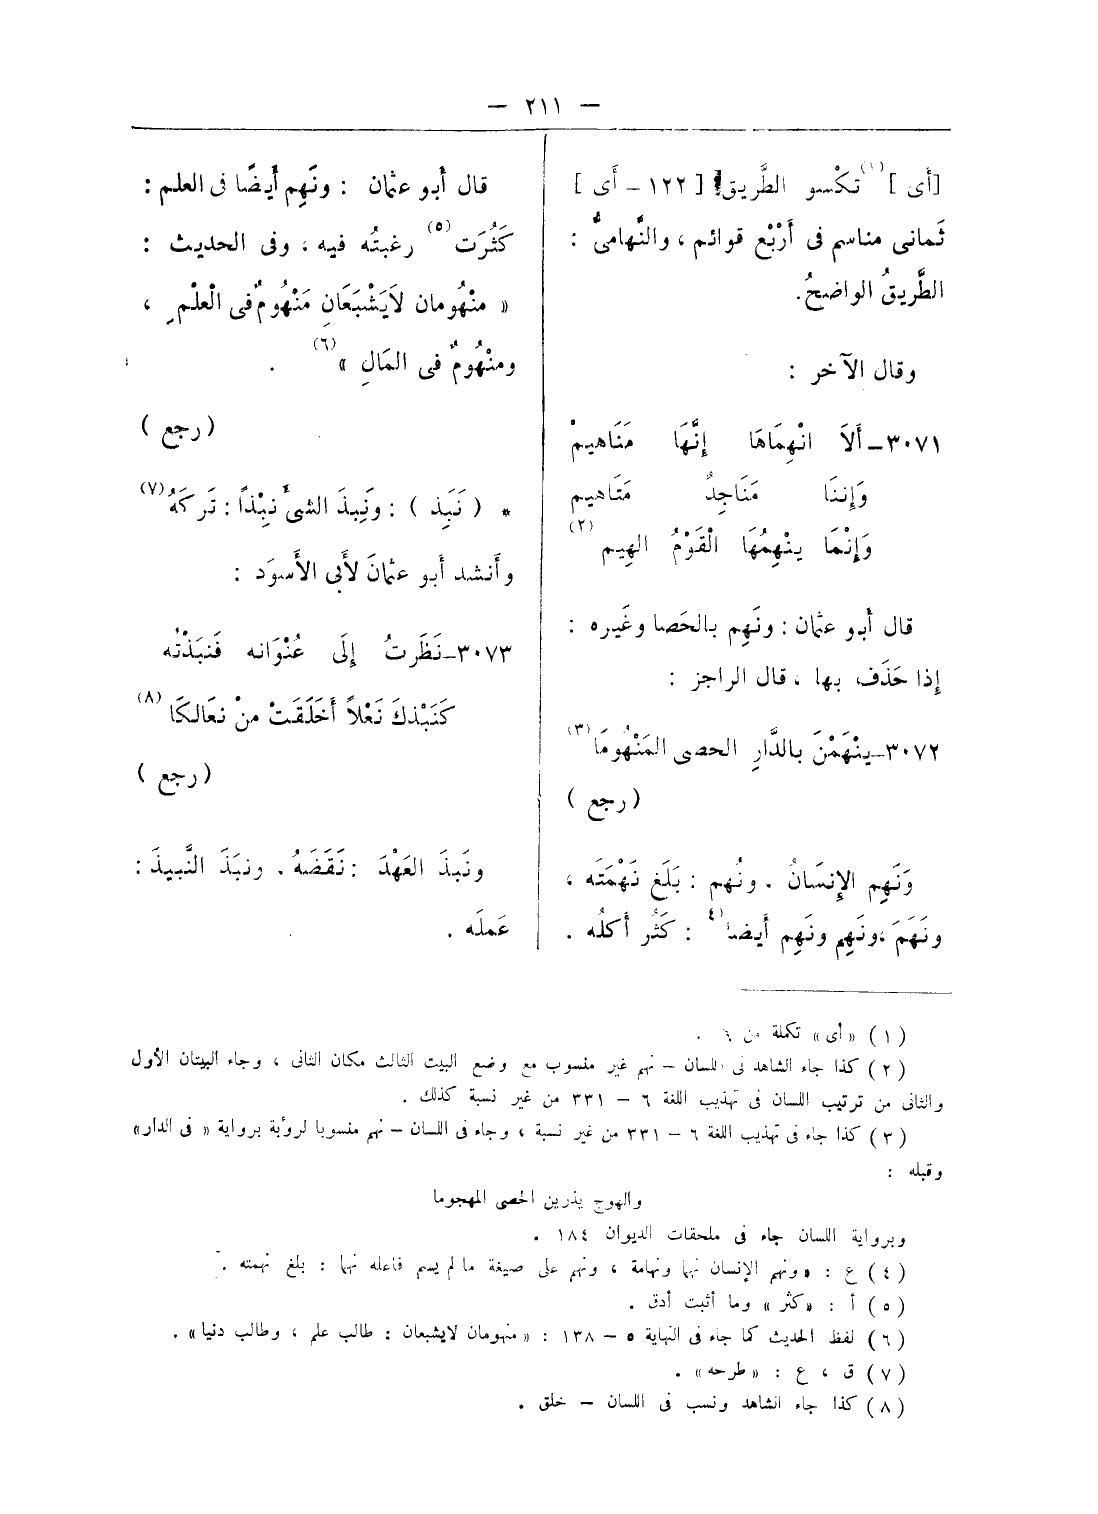 — ٢١١ —
[أى ]⁽١⁾ تكْسو الطَّريق [ ١٢٢ – أى ]
ثَمانى مناسم فى أَرْبْع قوائم ، والنُّهامىُّ :
الطَّريقُ الواضحُ.
وقال الآخر :
٣٠٧١ــ أَلاَ انْهِمَاهَا إِنَّهَا مَنَاهيمْ
وَإِننَا مَنَاجِدٌ مَتَاهيم
وَإِنْمَا ينْهِمُهَا الْقَوْمُ الهِيم ⁽٢⁾
قال أبو عثمان : ونَهِم بالحَصا وغَيره :
إذا حَذَف بها ، قال الراجز :
٣٠٧٢ــ ينْهَمْنَ بالدَّارِ الحصى المَنْهُومَا ⁽٣⁾
( رجع )
وَنَهِم الإِنسَانُ . ونُهم : بَلَغ نَهْمَتَه ،
ونَهَمَ ،ونَهِم ونَهِم أَيضا ⁽٤ : كَثُر أَكلُه .
قال أبو عثمان : ونَهِم أَيضًا فى العلم :
كَثُرَت ⁽٥⁾ رغبتُه فيه ، وفى الحديث :
« منْهُومان لاَيَشْبَعَانِ مَنْهُومٌ فى الْعلْمِ ،
ومنْهُومٌ فى المَالِ » ⁽٦⁾ .
( رجع )
* ( نَبَذ ) : ونَبِذَ الشىءَ نبْذاً : تَركَهُ ⁽٧⁾
وأَنشد أبو عثمانَ لأَبى الأَسوَد :
٣٠٧٣ــ نَظَرتُ إلَى عُنْوَانه فَنبَذْتُه
كَنَبْذكَ نَعْلاً أَخَلَقَتْ منْ نعَالكَا ⁽٨⁾
( رجع )
ونَبذَ العَهْدَ : نَقَضَهُ . ونبَذَ النَّبيذَ :
عَملَه .
( ١ ) « أى » تكملة من ٦ .
( ٢ ) كذا جاء الشاهد فى اللسان – نهم غير منسوب مع وضع البيت الثالث مكان الثانى ، وجاء البيتان الأول
والثانى من ترتيب اللسان فى تهذيب اللغة ٦ – ٣٣١ من غير نسبة كذلك .
( ٣ ) كذا جاء فى تهذيب اللغة ٦ – ٣٣١ من غير نسبة ، وجاء فى اللسان – نهم منسوبا لرؤبة برواية « فى الدار»
وقبله :
والهوج يذرين الحصى المهجوما
وبرواية اللسان جاء فى ملحقات الديوان ١٨٤ .
( ٤ ) ع : «ونهم الإنسان نهما ونهامة ، ونهم على صيغة ما لم يسم فاعله نهما : بلغ نهمته .
( ٥ ) أ : «كثر » وما أثبت أدق .
( ٦ ) لفظ الحديث كما جاء فى النهاية ٥ – ١٣٨ : «منهومان لايشبعان : طالب علم ، وطالب دنيا» .
( ٧ ) ق ، ع : «طرحه» .
( ٨ ) كذا جاء الشاهد ونسب فى اللسان – خلق .